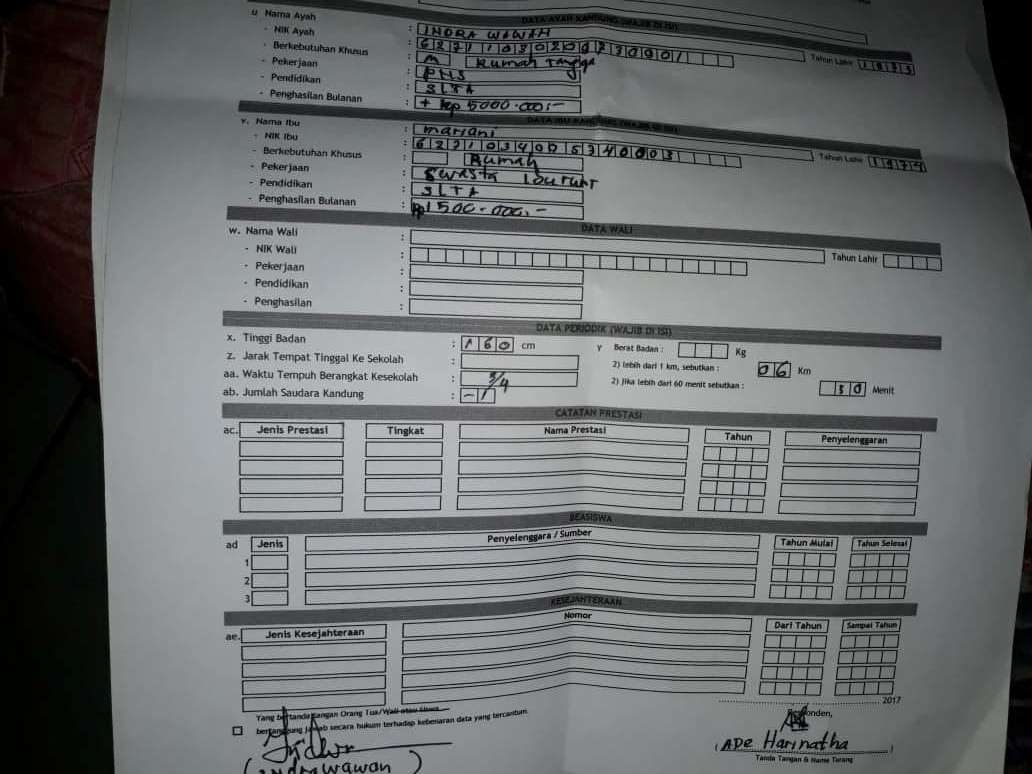 DATA AYAH KANDUNG (WAJIB DI ISI)
u Nama Ayah : INDRA WAWAN
- NIK Ayah : Tahun Lahir
- Berkebutuhan Khusus : Rumah Tangga
- Pekerjaan : PNS
- Pendidikan : SLTA
- Penghasilan Bulanan : + Rp 5000.000;-
DATA IBU KANDUNG (WAJIB DI ISI)
v. Nama Ibu : mariani
- NIK Ibu : 6221034005340003 Tahun Lahir 1974
- Berkebutuhan Khusus : Rumah
- Pekerjaan : Swasta
- Pendidikan : SLTA
- Penghasilan Bulanan : Rp 1500.000,-
DATA WALI
w. Nama Wali :
- NIK Wali : Tahun Lahir
- Pekerjaan :
- Pendidikan :
- Penghasilan :
DATA PERIODIK (WAJIB DI ISI)
x. Tinggi Badan : 160 cm y Berat Badan : Kg
z. Jarak Tempat Tinggal Ke Sekolah : 2) lebih dari 1 km, sebutkan : 06 Km
aa. Waktu Tempuh Berangkat Kesekolah : 3/4 2) Jika lebih dari 60 menit sebutkan : 30 Menit
ab. Jumlah Saudara Kandung : -1
CATATAN PRESTASI
ac. Jenis Prestasi Tingkat Nama Prestasi Tahun Penyelenggaran
BEASISWA
ad Jenis Penyelenggara / Sumber Tahun Mulai Tahun Selesai
1
2
3
KESEJAHTERAAN
ae. Jenis Kesejahteraan Nomor Dari Tahun Sampai Tahun
2017
Yang bertanda tangan Orang Tua/Wali atau Siswa Responden,
bertanggung jawab secara hukum terhadap kebenaran data yang tercantum
(Indrawawan) (ADE Harinatha)
Tanda Tangan & Nama Terang